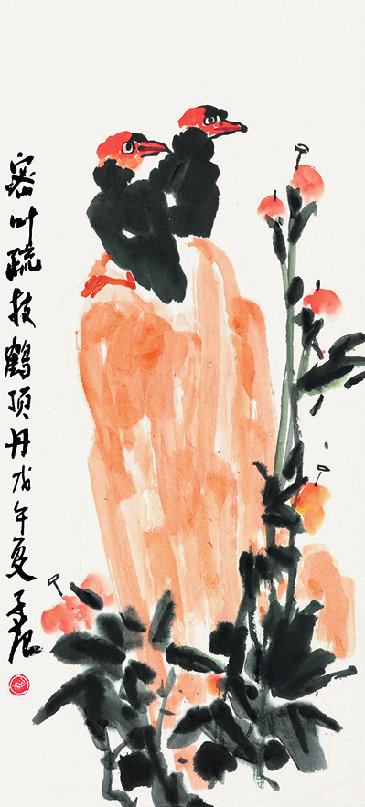 密叶疏枝鹤顶丹戊午夏子范